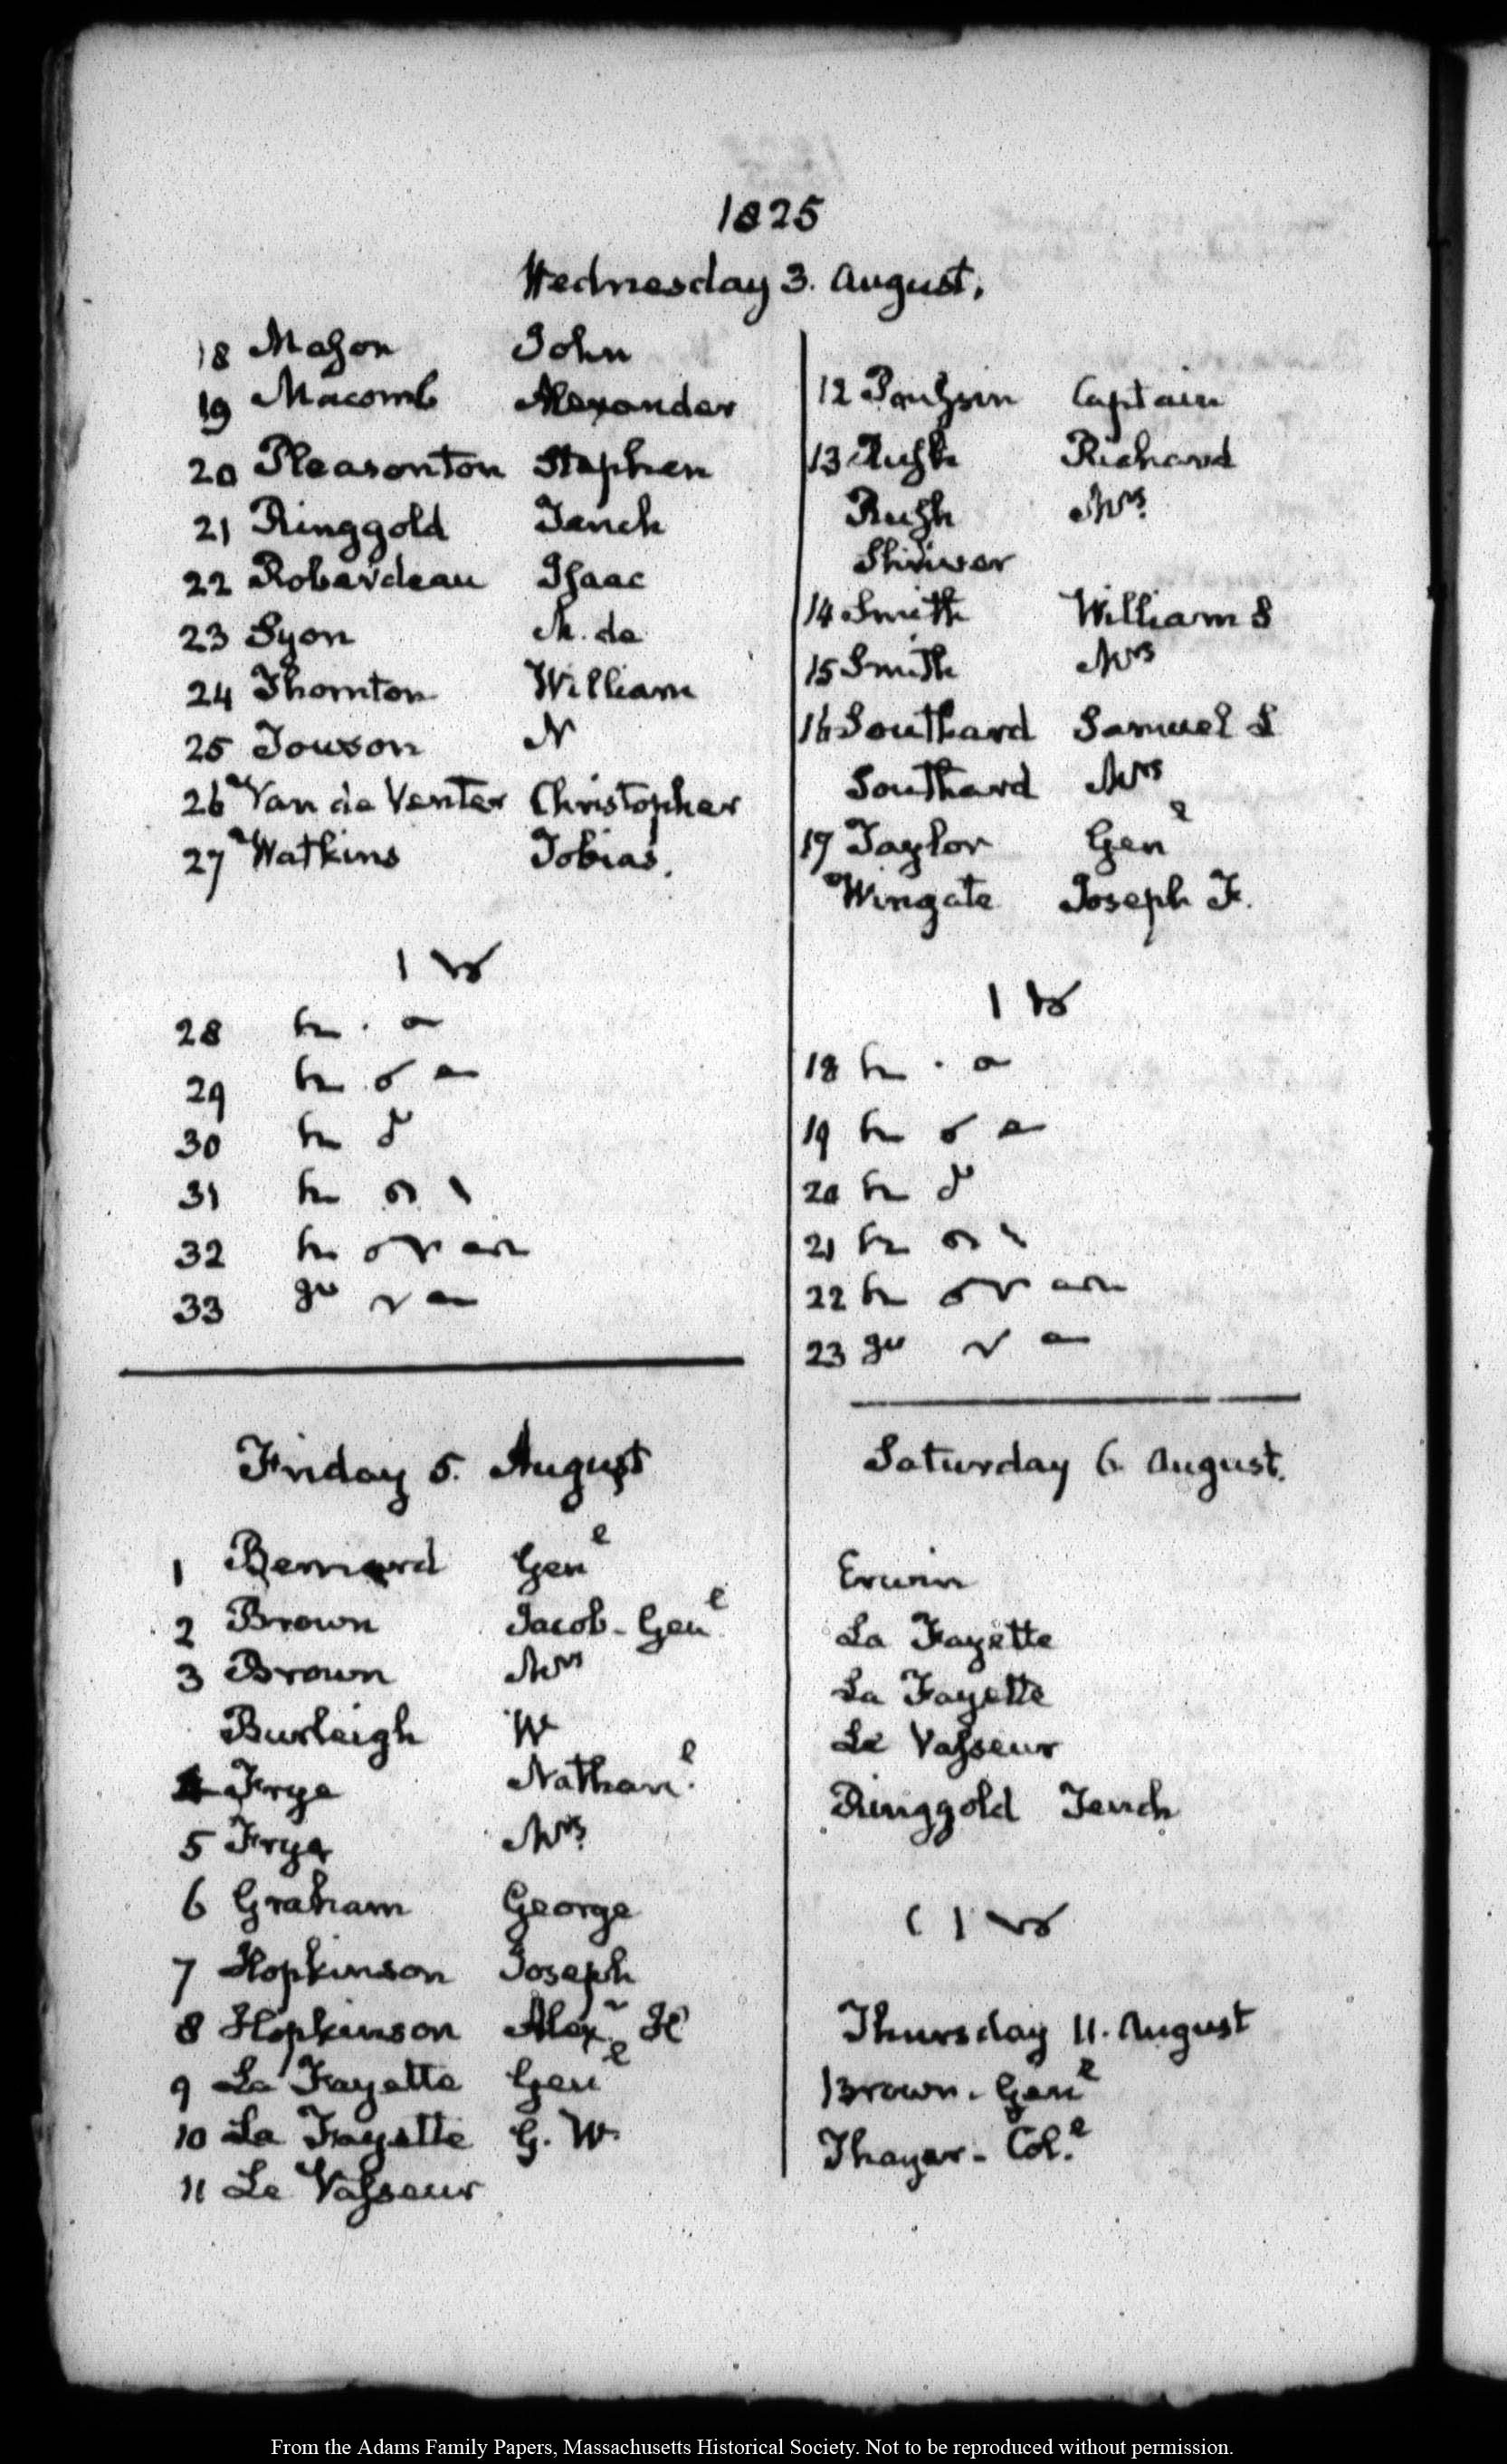 1825
Wednesday 3. August.
18 Mason John
19 Macomb Alexander
20 Pleasonton Stephen
21 Ringgold Tench
22 Roberdeau Isaac
23 Syon M. de
24 Thornton William
25 Towson N
26 Van de Venter Christopher
27 Watkins Tobias.
28
29
30
31
32
33
Friday 5. August
1 Bernard Genl
2 Brown Jacob - Genl
3 Brown Mrs
Burleigh W
4 Frye Nathanl.
5 Frye Mrs
6 Graham George
7 Hopkinson Joseph
8 Hopkinson Alexr. H
9 La Fayette Genl
10 La Fayette G. W.
11 Le Vasseur
12 Poussin Captain
13 Rush Richard
Rush Mrs
Shriver
14 Smith William S
15 Smith Mrs
16 Southard Samuel L
Southard Mrs
17 Taylor Genl
Wingate Joseph F.
18
19
20
21
22
23
Saturday 6. August.
Erwin
La Fayette
La Fayette
Le Vasseur
Ringgold Tench
Thursday 11. August
Brown - Genl
Thayer - Col.l
From the Adams Family Papers, Massachusetts Historical Society. Not to be reproduced without permission.